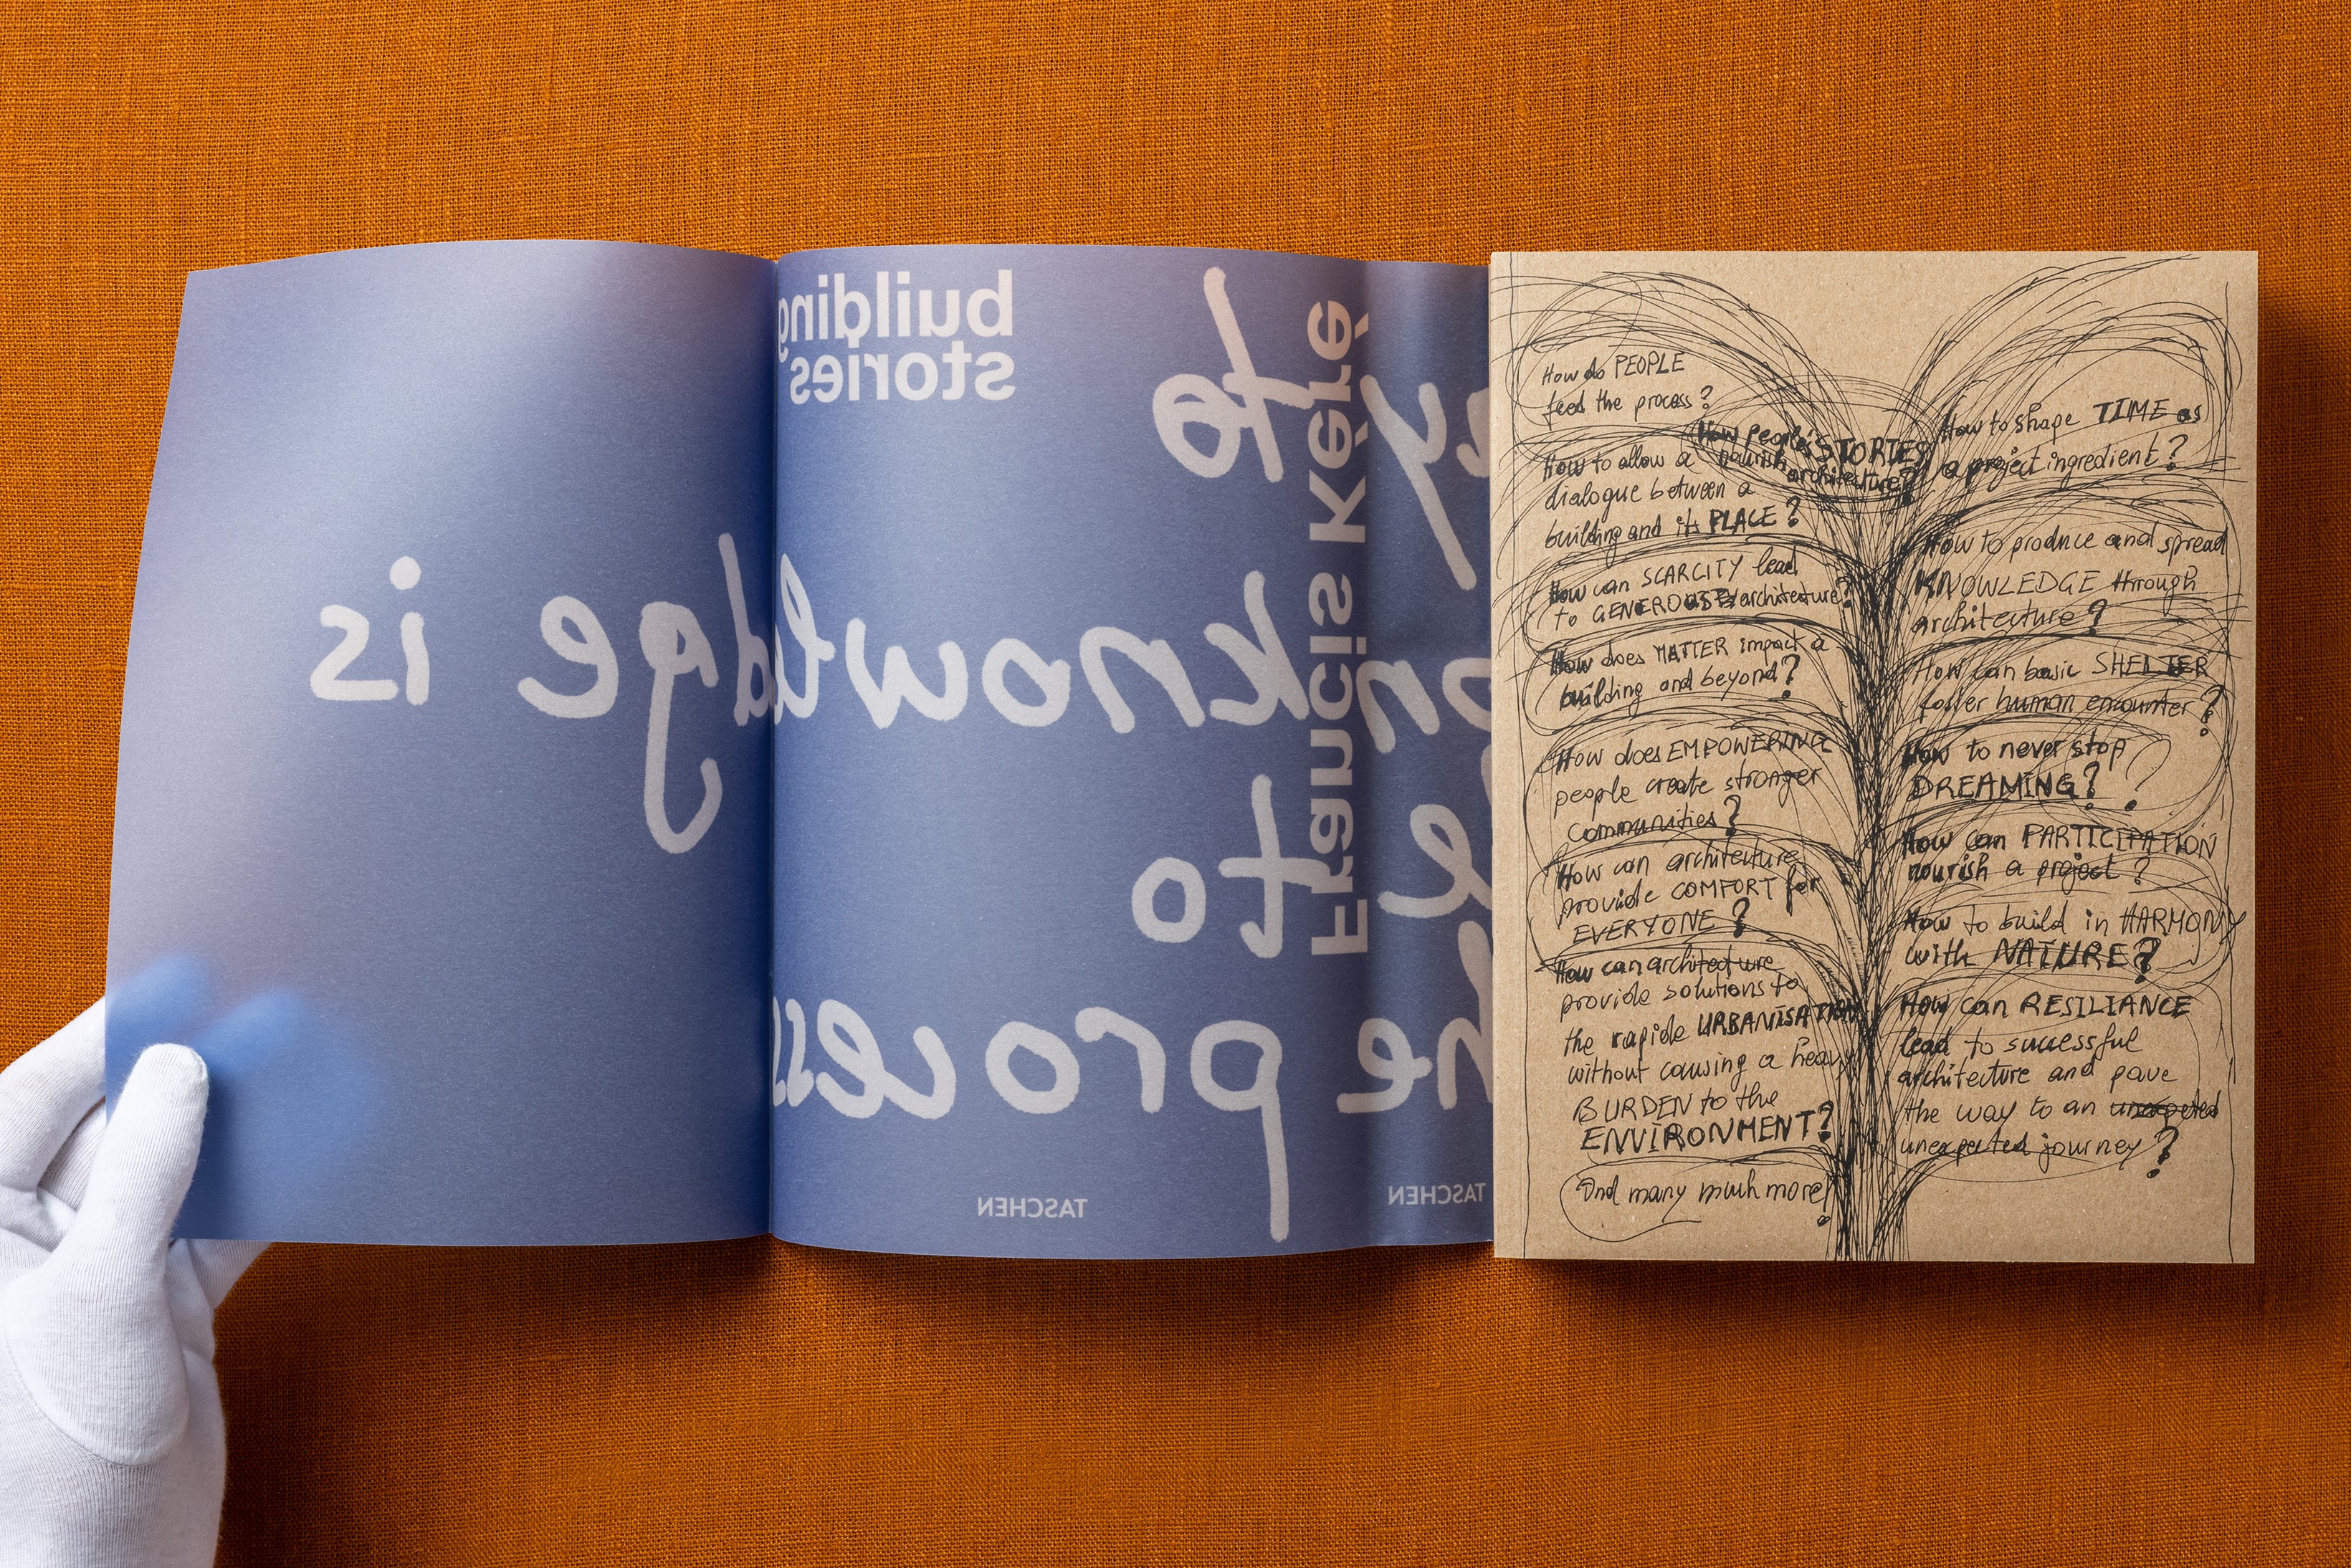 building
stories
to
Francis Kéré
knowledge is
to
process
he
TASCHEN
TASCHEN
How do PEOPLE
feed the process?
How people's STORIES
nourish
architecture?
How to allow a
dialogue between a
building and its PLACE?
How can SCARCITY lead
to GENEROUS architecture?
How does MATTER impact a
building and beyond?
How does EMPOWERING
people create stronger
communities?
How can architecture
provide COMFORT for
EVERYONE?
How can architecture
provide solutions to
the rapide URBANISATION
without causing a heavy
BURDEN to the
ENVIRONMENT?
And many much more!
How to shape TIME as
a project ingredient?
How to produce and spread
KNOWLEDGE through
architecture?
How can basic SHELTER
foster human encounter?
How to never stop
DREAMING??
How can PARTICIPATION
nourish a project?
How to build in HARMONY
with NATURE?
How can RESILIANCE
lead to successful
architecture and pave
the way to an
unexpected journey?